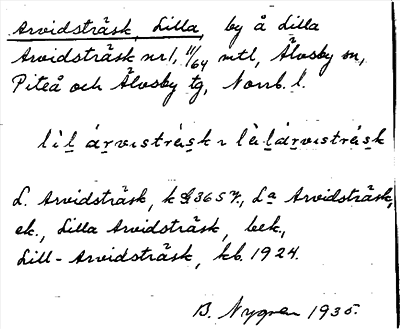 Arvidsträsk, Lilla, by å Lilla
Arvidsträsk nr 1, 11/64 mtl, Älvsby sn,
Piteå och Älvsby tg, Norrb. l.
lìl árvıstrásk ~ lìlárvıstrásk
L. Arvidsträsk, k 3657, La Arvidsträsk,
ek., Lilla Arvidsträsk, bek.,
Lill-Arvidsträsk, kb. 1924.
B. Nygren 1935.